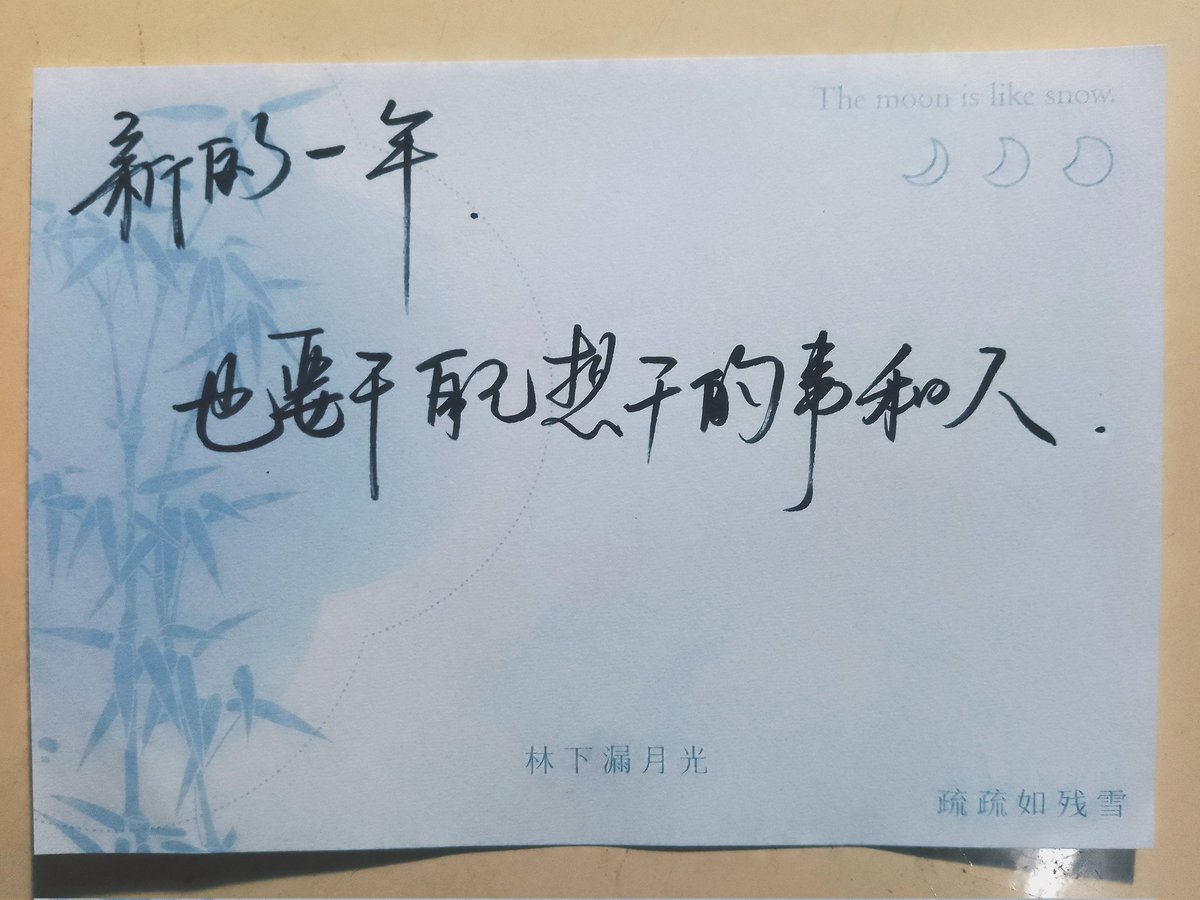 The moon is like snow.
新的一年.
也要干自己想干的事和人.
林下漏月光
疏疏如残雪